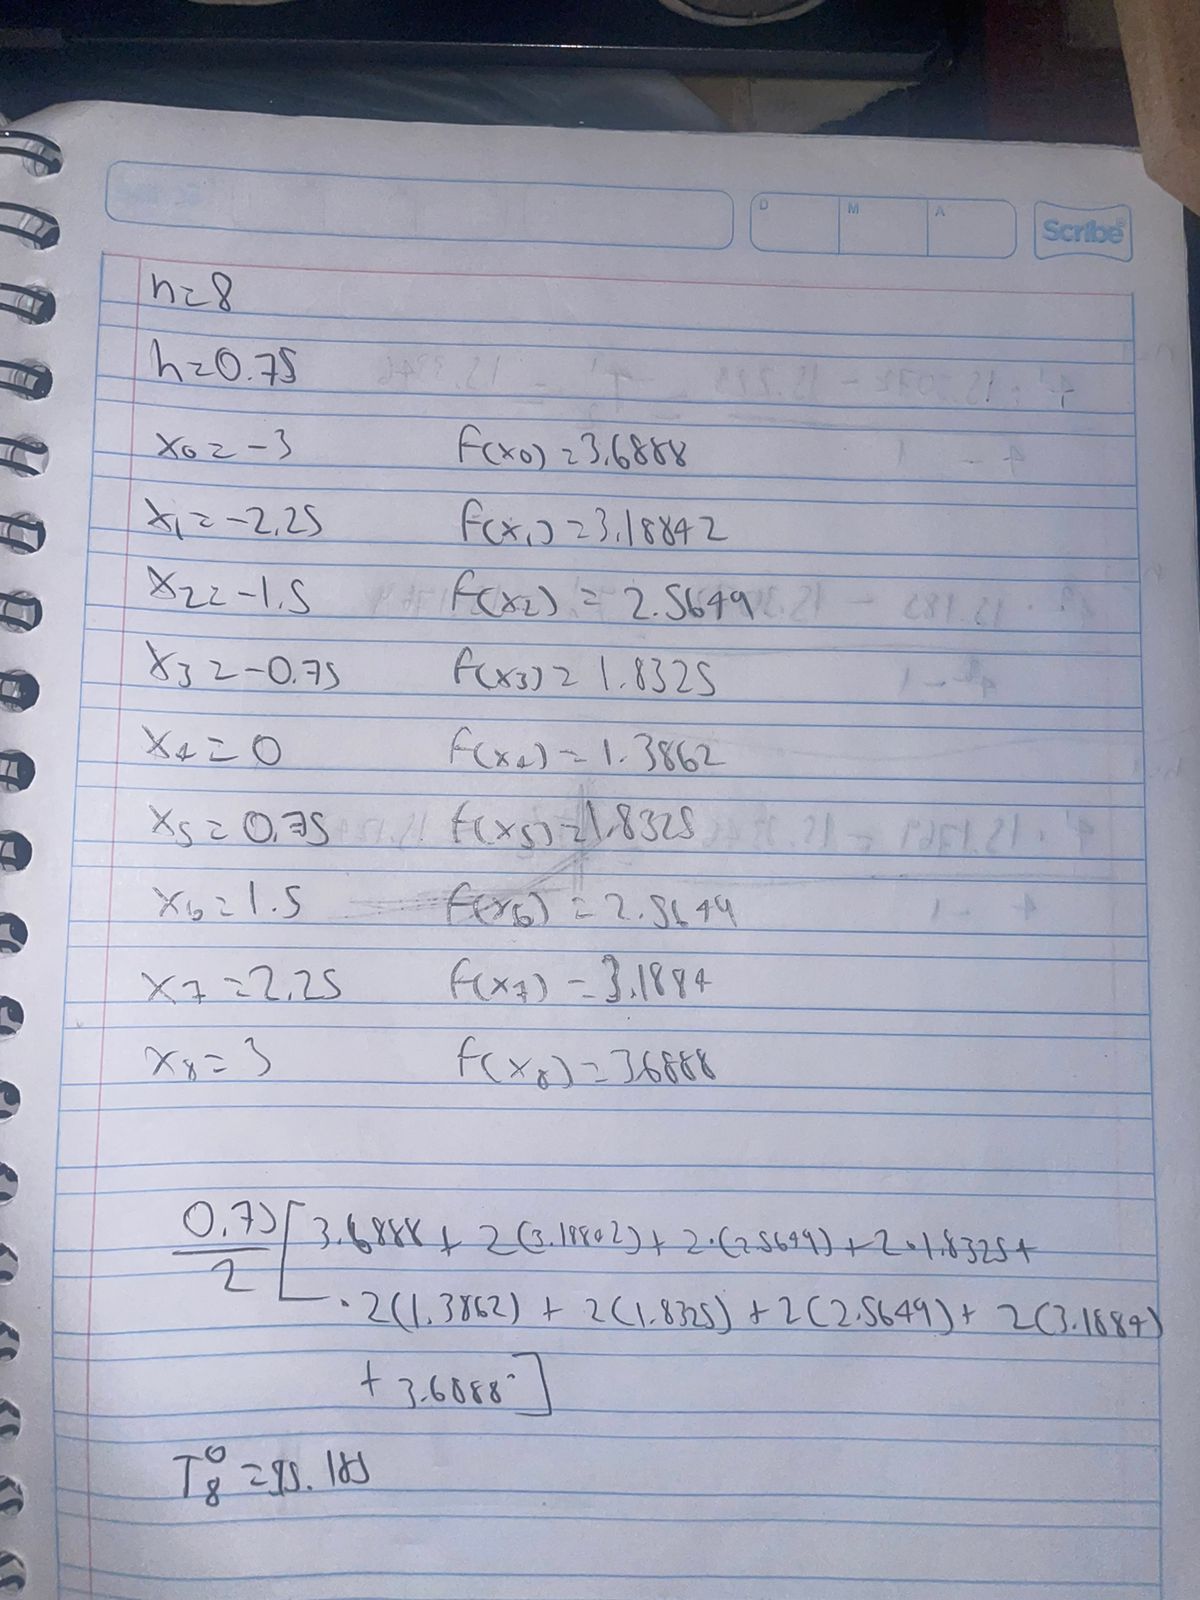 D M A Scribe
n=8
h=0.75
x0=-3 f(x0)=3.6888
x1=-2.25 f(x1)=3.18842
x2=-1.5 f(x2)=2.5649
x3=-0.75 f(x3)=1.8325
x4=0 f(x4)=1.3862
x5=0.75 f(x5)=1.8325
x6=1.5 f(x6)=2.5649
x7=2.25 f(x7)=3.1884
x8=3 f(x8)=3.6888
0.75/2 [3.6888 + 2(3.18842) + 2·(2.5649) + 2·1.8325 +
· 2(1.3862) + 2(1.8325) + 2(2.5649) + 2(3.1884)
+ 3.6888]
T8^0 = 15.185